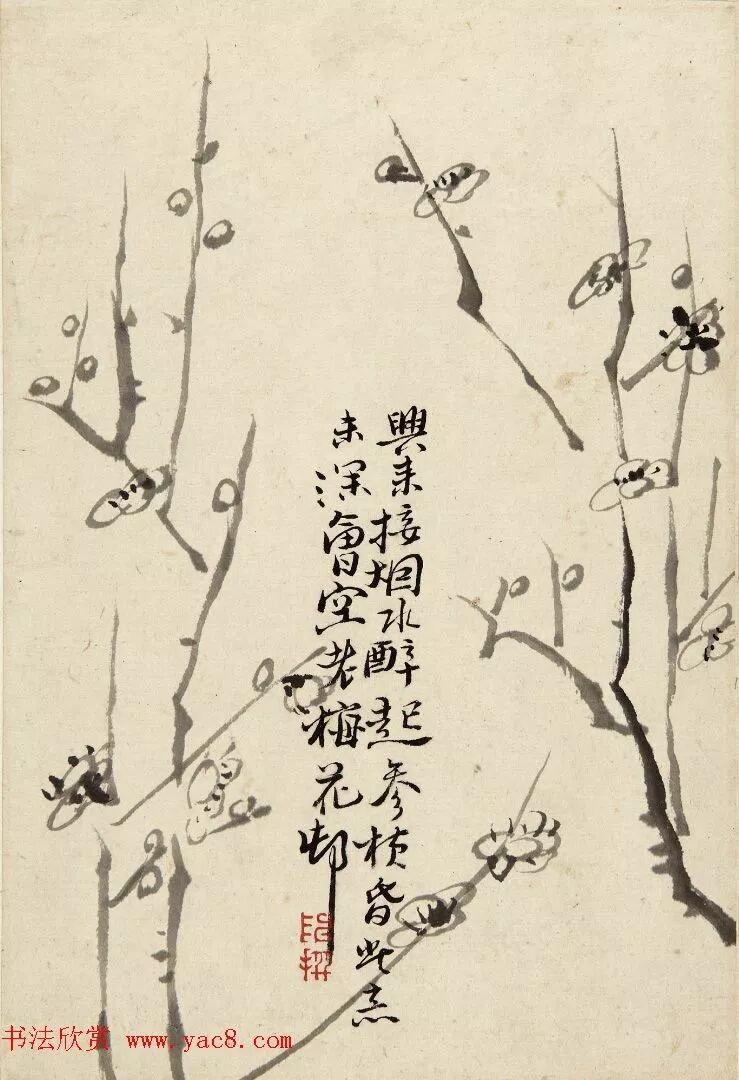 興来接烟水醉起參横昏此意
未深會空老梅花邨
书法欣赏 www.yac8.com